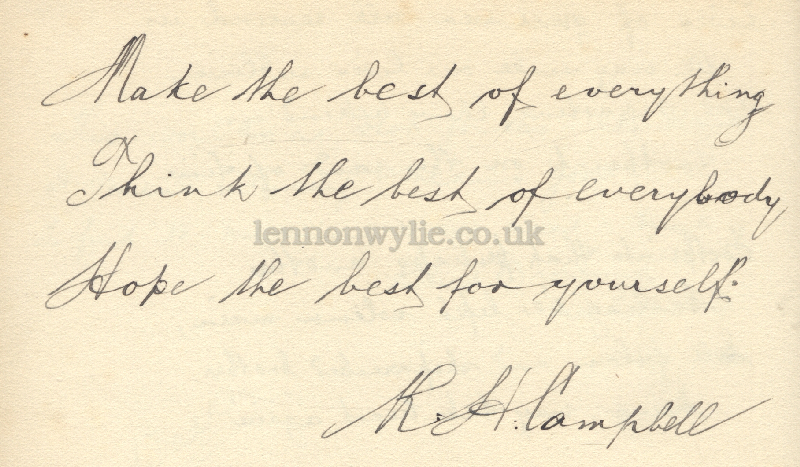 Make the best of everything
Think the best of everybody
lennonwylie.co.uk
Hope the best for yourself.
R. H. Campbell